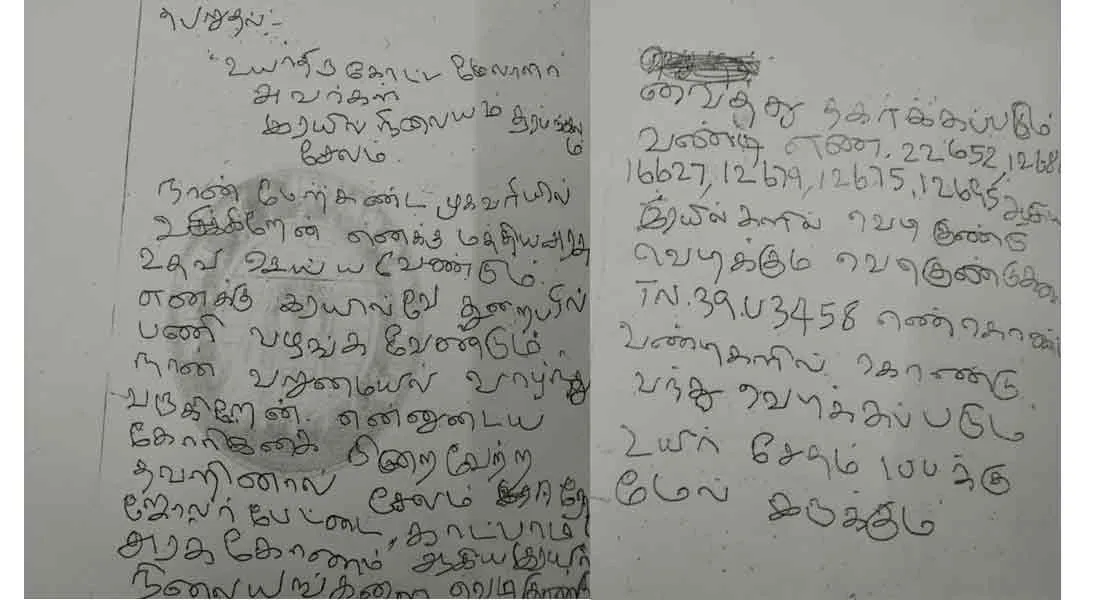 பெறுதல்:-
"உயர்திரு கோட்ட மேலாளர்
அவர்கள்
இரயில் நிலையம்
சேலம்.
நான் மேற்கண்ட முகவரியில்
வசிக்கிறேன் எனக்கு மத்தியஅரசு
உதவி செய்ய வேண்டும்.
எனக்கு இரயில்வே துறையில்
பணி வழங்க வேண்டும்.
நான் வறுமையில் வாழ்ந்து
வருகிறேன். என்னுடைய
கோரிக்கை நிறைவேற்ற
தவறினால் சேலம்
ஜோலார் பேட்டை, காட்பாடி
அரக்கோணம் ஆகிய இரயில்
நிலையங்களை வெடிகுண்டு
வைத்து தகர்க்கப்படும்
வண்டி எண். 22652, 1268
16627, 12679, 12675, 12695, ஆகிய
இரயில்களில் வெடிகுண்டு
வெடிக்கும் வெடிகுண்டுகளை
TN.39.U3458 எண்கொண்ட
வண்டிகளில் கொண்டு
வந்து வெடிக்கப்படும்
உயிர் சேதம் 100க்கு
மேல் இருக்கும்